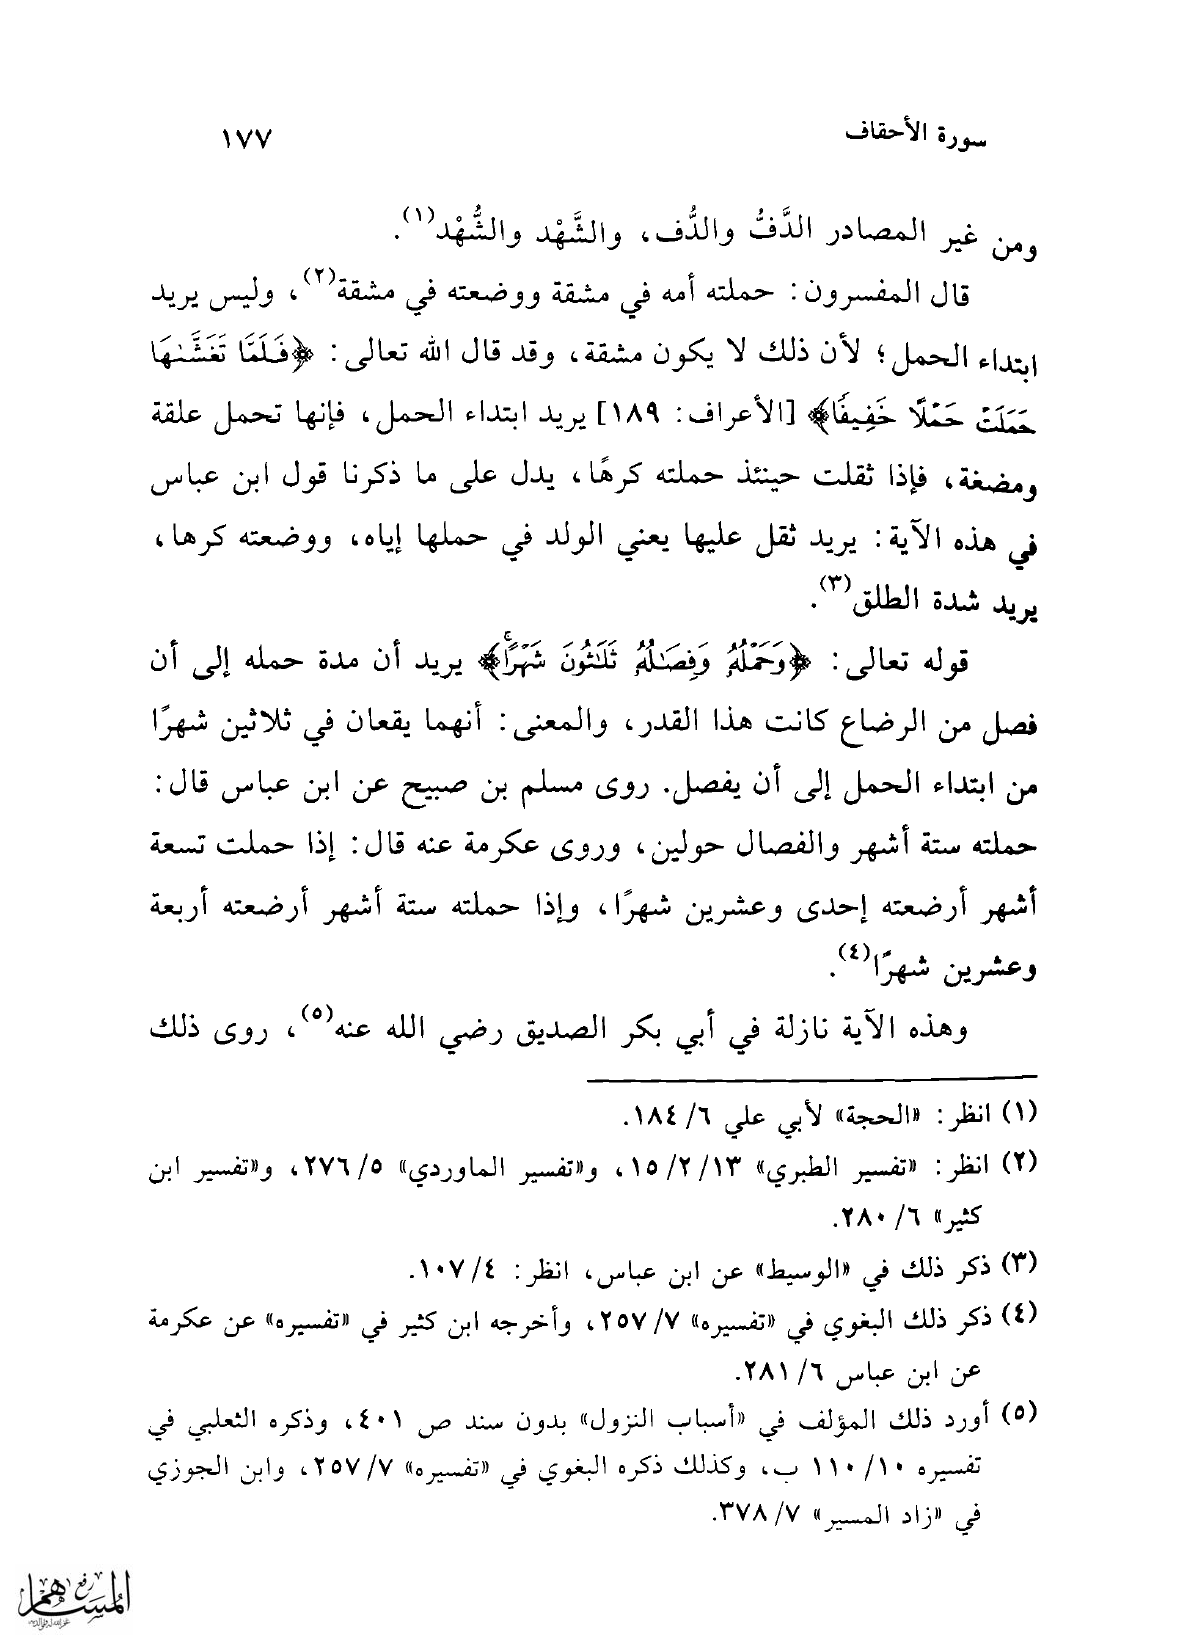 سورة الأحقاف ١٧٧
ومن غير المصادر الدَّفُّ والدُّف، والشَّهْد والشُّهْد(١).
قال المفسرون: حملته أمه في مشقة ووضعته في مشقة(٢)، وليس يريد
ابتداء الحمل؛ لأن ذلك لا يكون مشقة، وقد قال الله تعالى: ﴿فَلَمَّا تَغَشَّىٰهَا
حَمَلَتْ حَمْلًا خَفِيفًا﴾ [الأعراف: ١٨٩] يريد ابتداء الحمل، فإنها تحمل علقة
ومضغة، فإذا ثقلت حينئذ حملته كرهًا، يدل على ما ذكرنا قول ابن عباس
في هذه الآية: يريد ثقل عليها يعني الولد في حملها إياه، ووضعته كرها،
يريد شدة الطلق(٣).
قوله تعالى: ﴿وَحَمْلُهُۥ وَفِصَٰلُهُۥ ثَلَٰثُونَ شَهْرًاۚ﴾ يريد أن مدة حمله إلى أن
فصل من الرضاع كانت هذا القدر، والمعنى: أنهما يقعان في ثلاثين شهرًا
من ابتداء الحمل إلى أن يفصل. روى مسلم بن صبيح عن ابن عباس قال:
حملته ستة أشهر والفصال حولين، وروى عكرمة عنه قال: إذا حملت تسعة
أشهر أرضعته إحدى وعشرين شهرًا، وإذا حملته ستة أشهر أرضعته أربعة
وعشرين شهرًا(٤).
وهذه الآية نازلة في أبي بكر الصديق رضي الله عنه(٥)، روى ذلك
(١) انظر: «الحجة» لأبي علي ٦/ ١٨٤.
(٢) انظر: «تفسير الطبري» ١٣/ ٢/ ١٥، و«تفسير الماوردي» ٥/ ٢٧٦، و«تفسير ابن
كثير» ٦/ ٢٨٠.
(٣) ذكر ذلك في «الوسيط» عن ابن عباس، انظر: ٤/ ١٠٧.
(٤) ذكر ذلك البغوي في «تفسيره» ٧/ ٢٥٧، وأخرجه ابن كثير في «تفسيره» عن عكرمة
عن ابن عباس ٦/ ٢٨١.
(٥) أورد ذلك المؤلف في «أسباب النزول» بدون سند ص ٤٠١، وذكره الثعلبي في
تفسيره ١٠/ ١١٠ ب، وكذلك ذكره البغوي في «تفسيره» ٧/ ٢٥٧، وابن الجوزي
في «زاد المسير» ٧/ ٣٧٨.
رفع
المساهم